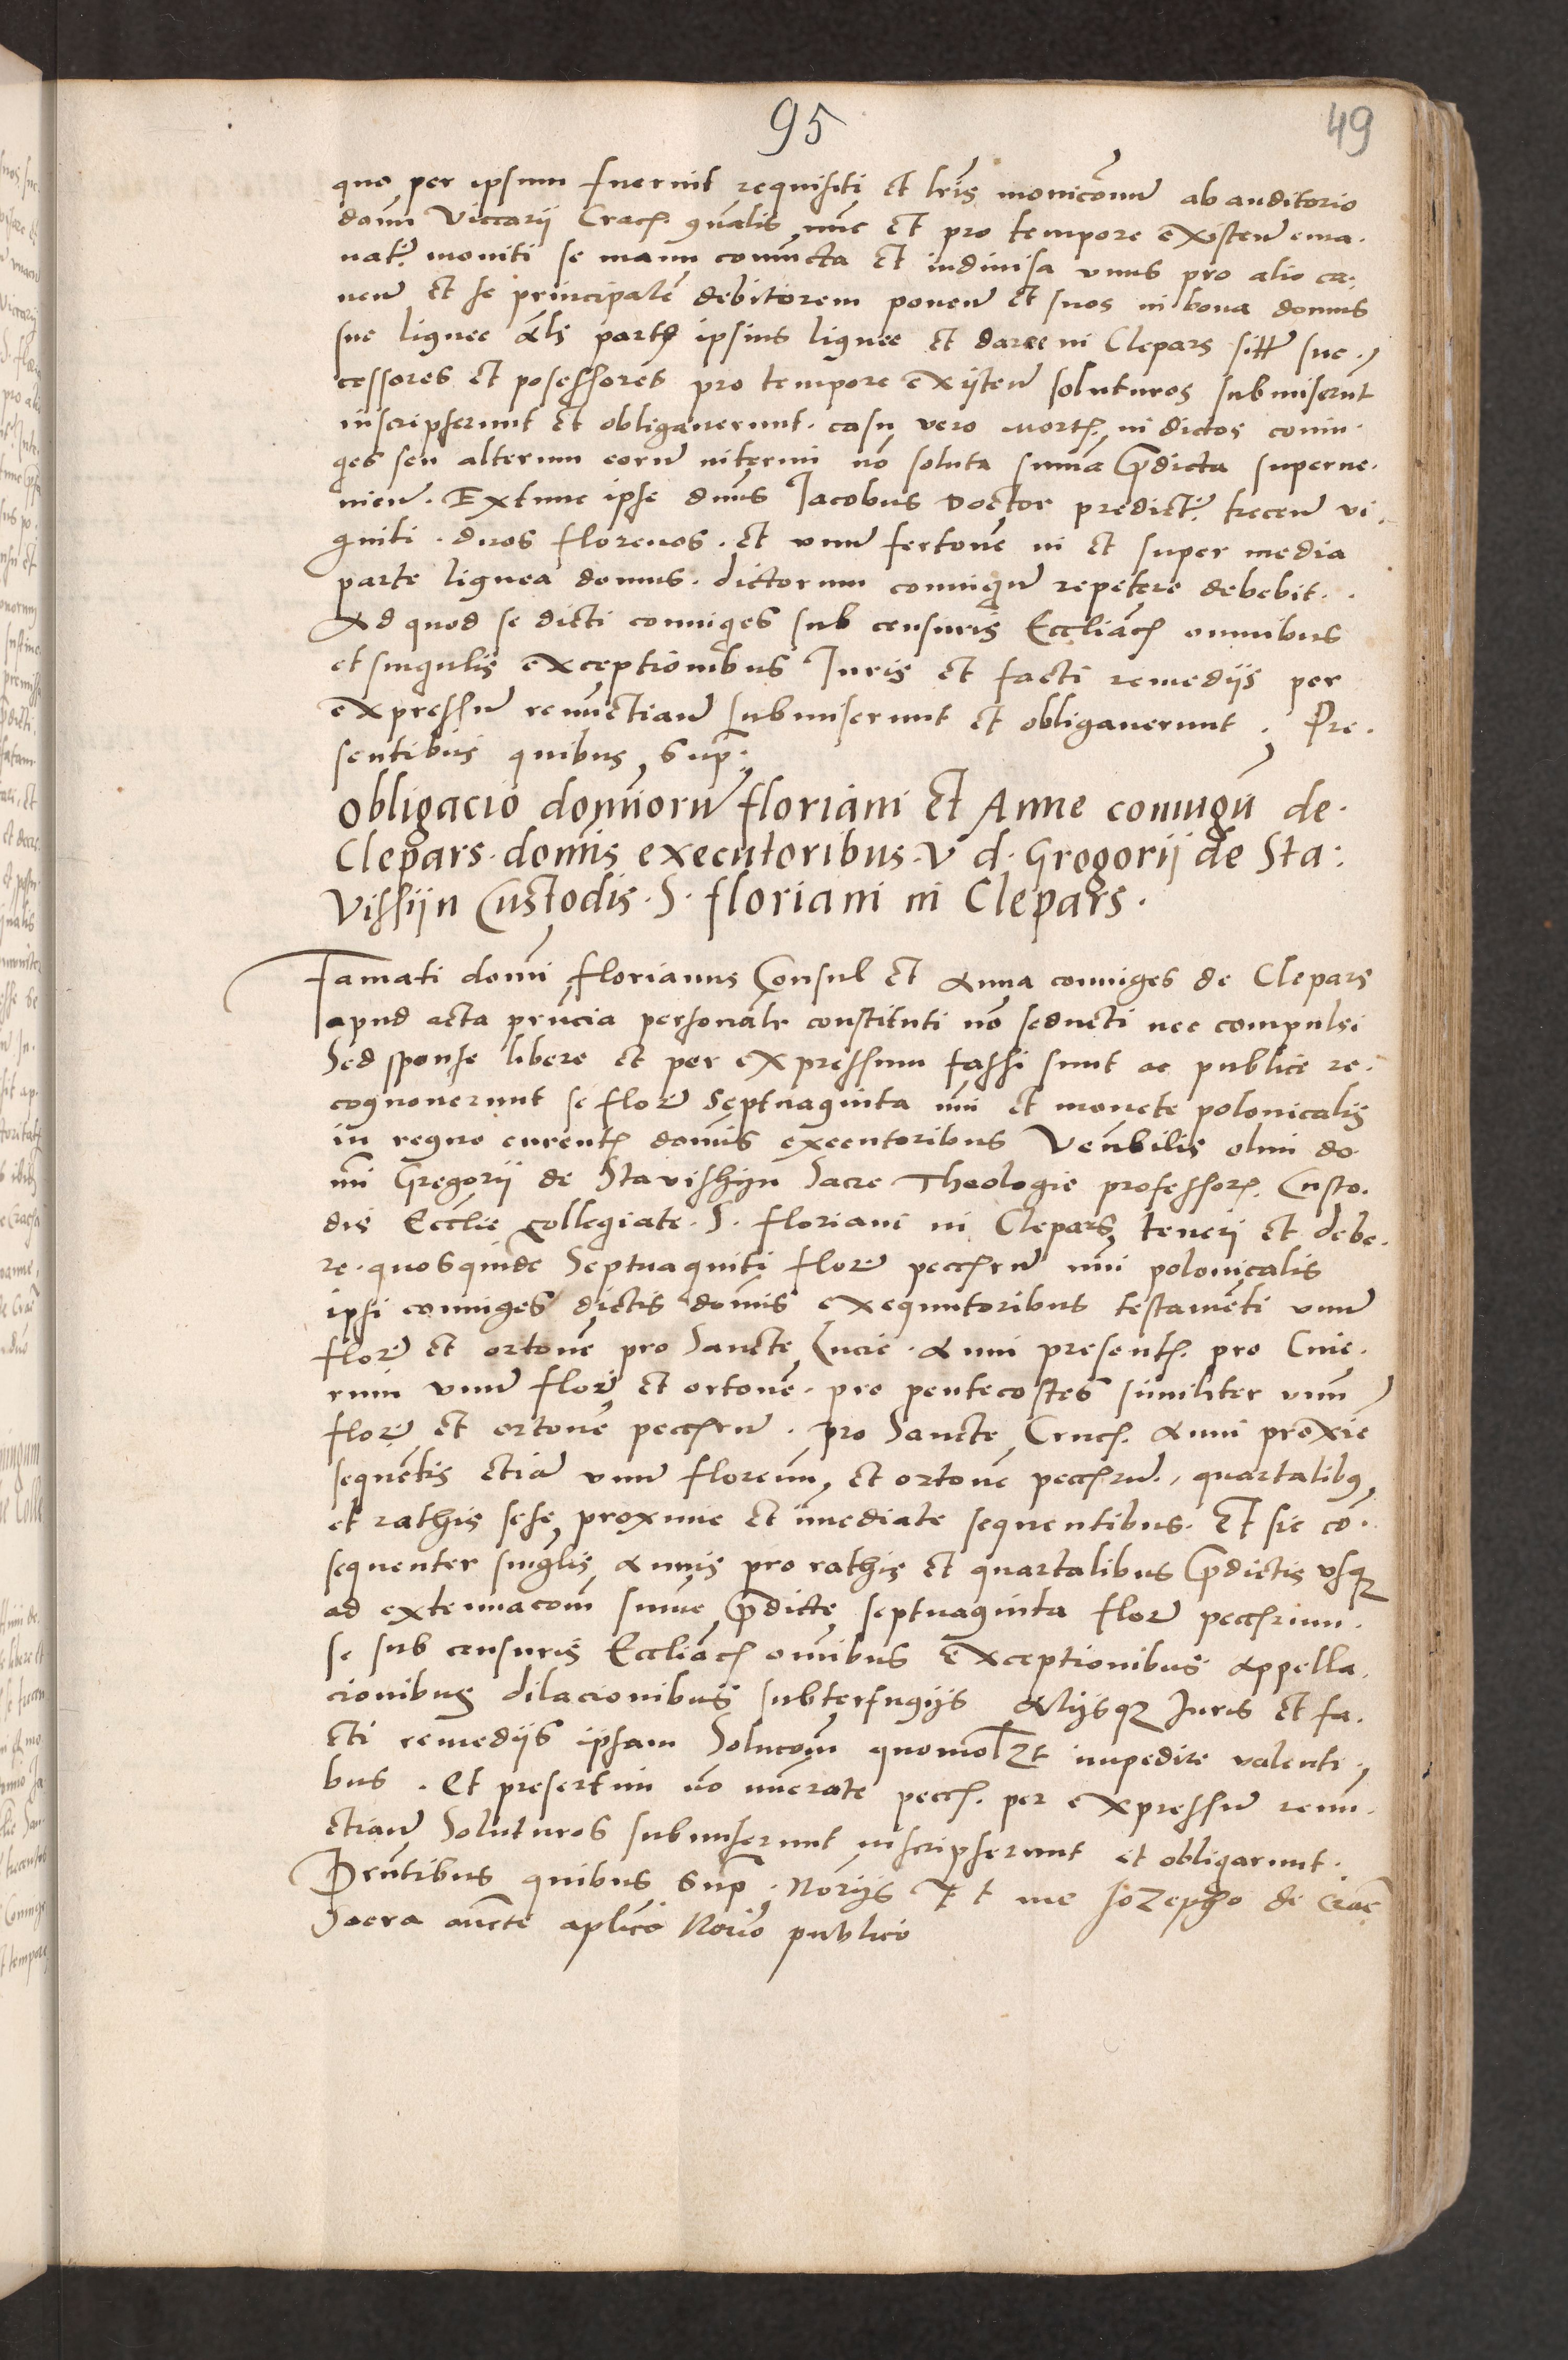 95
49
quo per ipsum fuerint requisiti et lris monicōnu ab auditorio
domi Viccarii Crach. gnalis nunc et pro tempore existen ema.
nat. moniti se manu coniuncta et indivisa unus pro alio ca.
nen et se principalē debitorem ponen et suos in bona domus
sue lignee als partis ipsius lignee et daree in Clepars sitte suc
cessores et posessores pro tempore exijsten soluturos submiserunt
inscripserunt et obligaverunt. casu vero mortis in dictos coniu.
ges seu alterum eorum interim nō soluta sūma p̄dicta superve.
nien. Extunc ipse dnus Jacobus doctor predict. trecen vi.
ginti. duos florenos. et unum fertonē in et super media
parte lignea domus. dictorum coniugu repetere debebit..
Ad quod se dicti coniuges sub censuris Eccliach omnibus
et singulis exceptionibus Juris et facti remedijs per
expressum renunctian submiserunt et obligaverunt. Pre.
sentibus quibus sup.
Obligacio domiorum floriani et Anne coniugu de.
Clepars. domis executoribus. V d. Grogorij de Sta:
vissijn Custodis. S. floriani in Clepars.
Famati domi florianus Consul et Anna coniuges de Clepars
apud acta prncia personalr constituti nō seducti nec compulsi
Sed sponse libere et per expressum fassi sunt ac publice re.
cognoverunt se flor septuaginta nūi et monete polonicalis
in regno curentis domis executoribus Venbilis olim do
mi Gregorij de Stavishijn Sacre Theologie professoris Custo.
dis Ecclie collegiate. S. floriani in Clepars teneri et debe.
re. quosquidē Septuaginti flor pecchru nūi polonicalis
ipsi coniuges dictis domis exequutoribus testamēti unum
flor et ortonē pro Sancte Lucie. Anni presentis. pro Cine.
rum unum flor et ortonē. pro pentecostes similiter unū
flor et ortonē pecchru. pro Sancte Crucis. Anni proxie
sequētis etiā unum florenū et ortonē pecchru. quartalibus
et rathis sese proxime et imediate sequentibus. Et sic cō.
sequenter singlis Annis pro rathis et quartalibus p̄dictis usq
ad extenuacōm sume p̄dicte septuaginta flor pecchrium.
se sub censuris Eccliach omibus exceptionibus appella.
cionibus dilacionibus subterfugijs Alijsq Juris et fa.
cti remedijs ipsam Solucōm quomolzt impedire valenti
bus. Et presertim nō nūerate pecch. per expressum renu.
ctian Soluturos submiserunt inscripserunt et obligarunt.
Prntibus quibus sup. Norijs Et me Jozepho de Crac
Sacra aucte aplica Norio publico